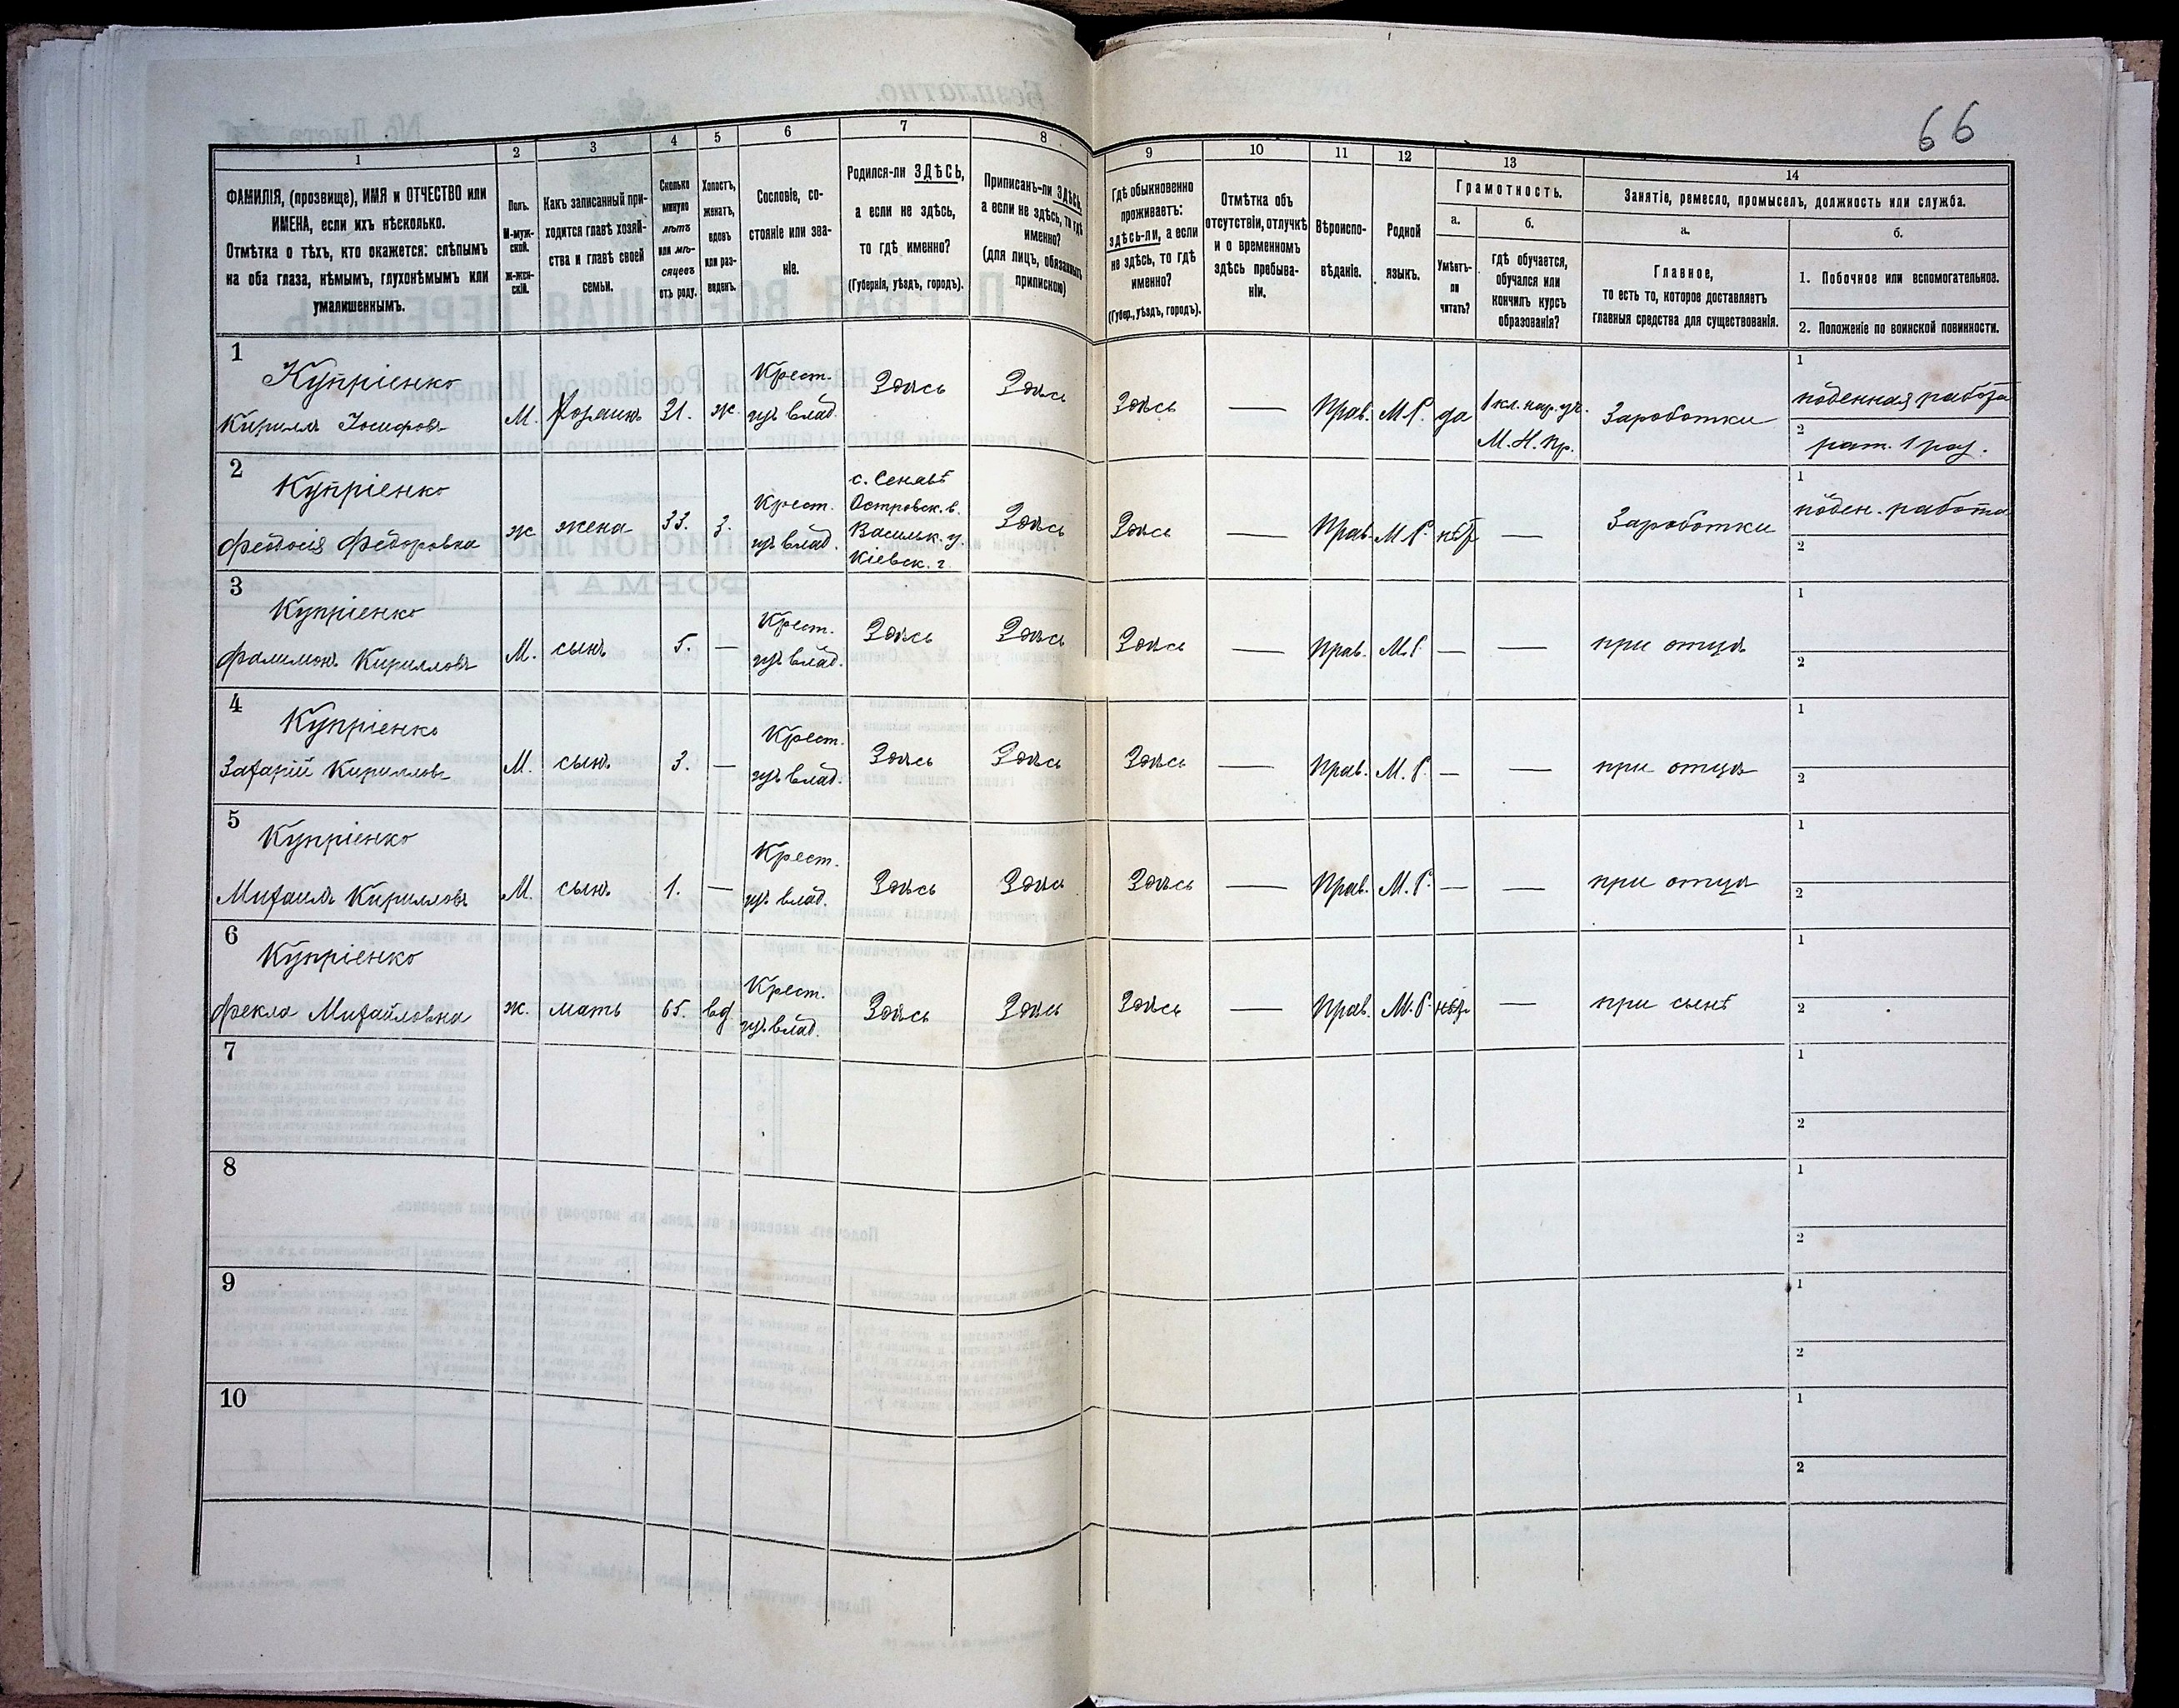 66
1
2
3
4
5
6
7
8
9
10
11
12
13
14
ФАМИЛІЯ, (прозвище), ИМЯ и ОТЧЕСТВО или
ИМЕНА, если ихъ нѣсколько.
Отмѣтка о тѣхъ, кто окажется: слѣпымъ
на оба глаза, нѣмымъ, глухонѣмымъ или
умалишеннымъ.
Полъ.
М-муж-
ской.
Ж-жен-
скій.
Какъ записанный при-
ходится главѣ хозяй-
ства и главѣ своей
семьи.
Сколько
минуло
лѣтъ
или мѣ-
сяцевъ
отъ роду.
Холостъ,
женатъ,
вдовъ
или раз-
веденъ.
Сословіе, со-
стояніе или зва-
ніе.
Родился-ли ЗДѢСЬ,
а если не здѣсь,
то гдѣ именно?
(Губернія, уѣздъ, городъ).
Приписанъ-ли ЗДѢСЬ,
а если не здѣсь, то гдѣ
именно?
(для лицъ, обязанныхъ
припискою)
Гдѣ обыкновенно
проживаетъ:
здѣсь-ли, а если
не здѣсь, то гдѣ
именно?
(Губер., уѣздъ, городъ).
Отмѣтка объ
отсутствіи, отлучкѣ
и о временномъ
здѣсь пребыва-
ніи.
Вѣроиспо-
вѣданіе.
Родной
языкъ.
Грамотность.
а.
Умѣетъ-
ли
читать?
б.
гдѣ обучается,
обучался или
кончилъ курсъ
образованія?
Занятіе, ремесло, промыселъ, должность или служба.
а.
Главное,
то есть то, которое доставляетъ
главныя средства для существованія.
б.
1. Побочное или вспомогательное.
2. Положеніе по воинской повинности.
1
Купріенко
Кириллъ Іосифовъ
М.
Хозяинъ
31.
ж.
Крест.
изъ влад.
Здѣсь
Здѣсь
Здѣсь
—
Прав.
М.Р.
да
1 кл. нар. уч.
М.Н.Пр.
Зароботки
1
поденная работа
2
рат. 1 раз.
2
Купріенко
Феодосія Федоровна
ж
жена
33.
з.
Крест.
изъ влад.
Островск. в.
Васильк. у.
Кіевск. г.
Здѣсь
Здѣсь
—
Прав.
М.Р.
нѣт
—
Зароботки
1
поден. работа
2
3
Купріенко
Фалимонъ Кирилловъ
М.
сынъ
5.
—
Крест.
изъ влад.
Здѣсь
Здѣсь
Здѣсь
—
Прав.
М.Р.
—
—
при отцѣ
1
2
4
Купріенко
Захарій Кирилловъ
М.
сынъ
3.
—
Крест.
изъ влад.
Здѣсь
Здѣсь
Здѣсь
—
Прав.
М.Р.
—
—
при отцѣ
1
2
5
Купріенко
Михаилъ Кирилловъ
М.
сынъ
1.
—
Крест.
изъ влад.
Здѣсь
Здѣсь
Здѣсь
—
Прав.
М.Р.
—
—
при отцѣ
1
2
6
Купріенко
Фекла Михайловна
ж.
мать
65.
вд
Крест.
изъ влад.
Здѣсь
Здѣсь
Здѣсь
—
Прав.
М.Р.
нѣт
—
при сынѣ
1
2
7
1
2
8
1
2
9
1
2
10
1
2